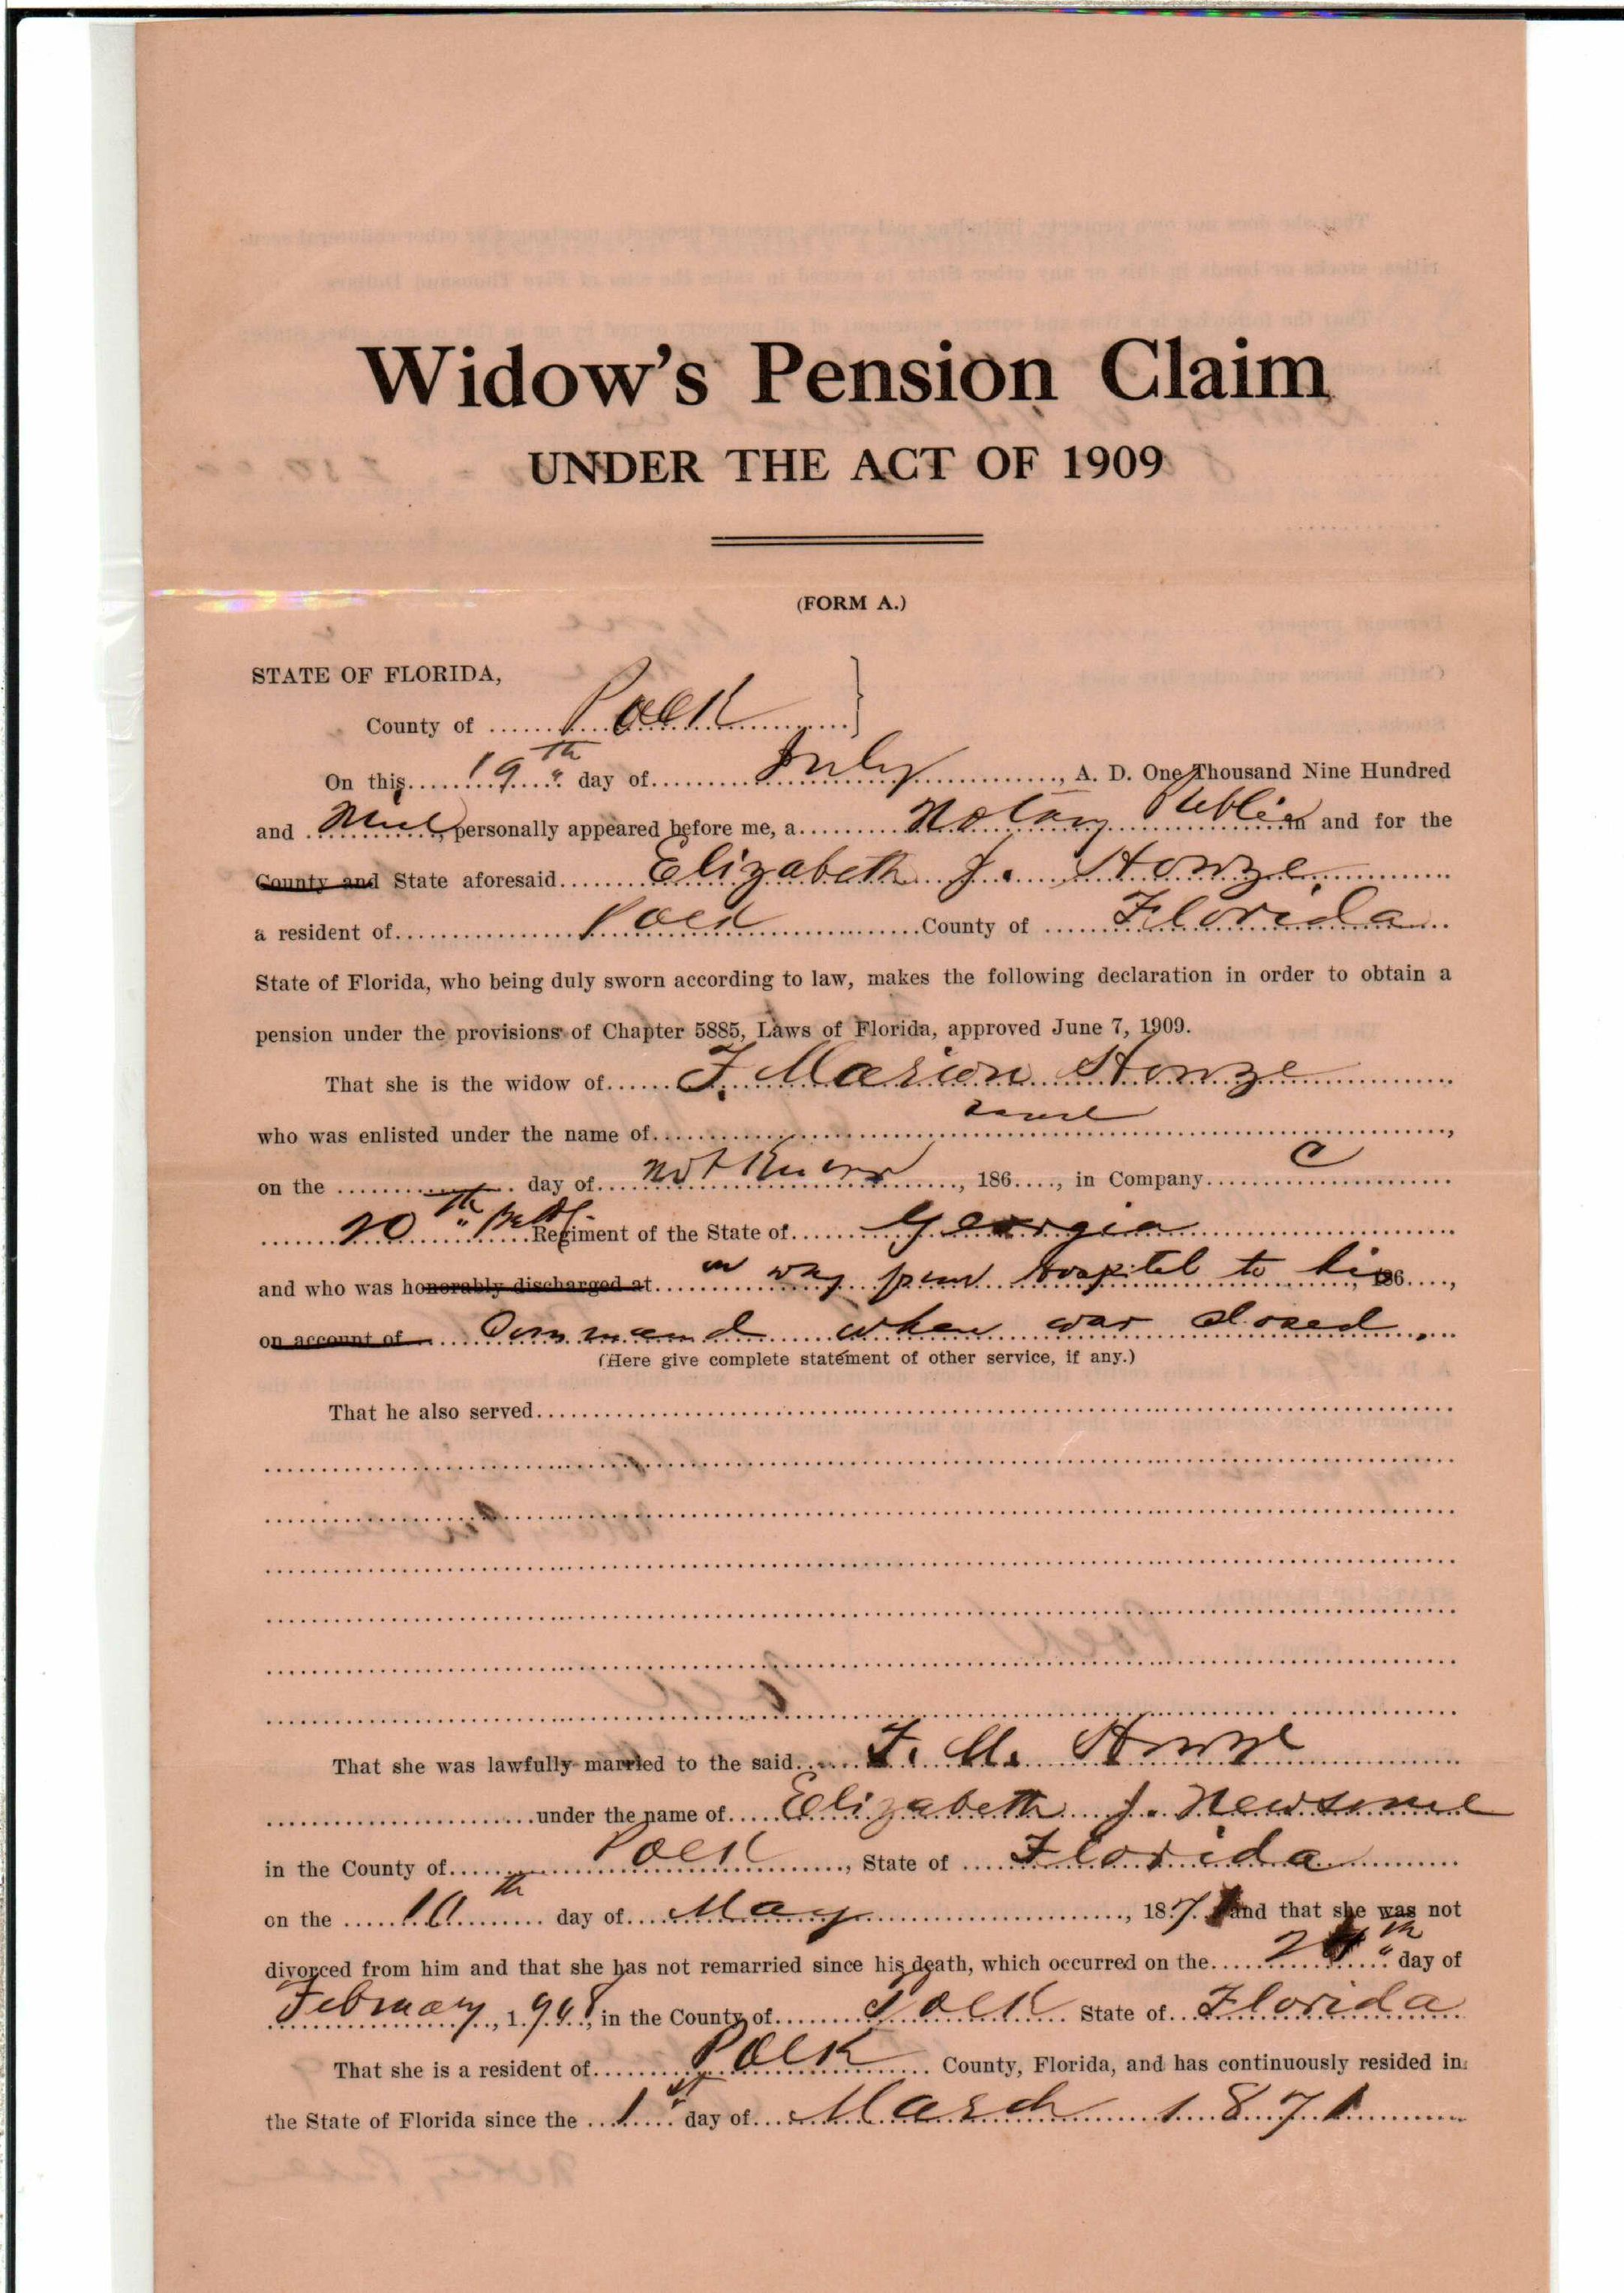 Widow's Pension Claim
UNDER THE ACT OF 1909
(FORM A.)
STATE OF FLORIDA,
County of Polk
On this 19th day of July, A. D. One Thousand Nine Hundred
and Nine, personally appeared before me, a Notary Public in and for the
County and State aforesaid Elizabeth J. Howze
a resident of Polk County of Florida
State of Florida, who being duly sworn according to law, makes the following declaration in order to obtain a
pension under the provisions of Chapter 5885, Laws of Florida, approved June 7, 1909.
That she is the widow of F. Marion Howze
who was enlisted under the name of same,
on the day of not known, 186, in Company C
20th Batl. Regiment of the State of Georgia
and who was honorably discharged at on way from Hospital to his, 186,
on account of Command when war closed.
(Here give complete statement of other service, if any.)
That he also served
That she was lawfully married to the said F. M. Howze
under the name of Elizabeth J. Newsome
in the County of Polk, State of Florida
on the 10th day of May, 1871 and that she was not
divorced from him and that she has not remarried since his death, which occurred on the day of
February, 1908, in the County of Polk State of Florida
That she is a resident of Polk County, Florida, and has continuously resided in
the State of Florida since the 1st day of March 1871